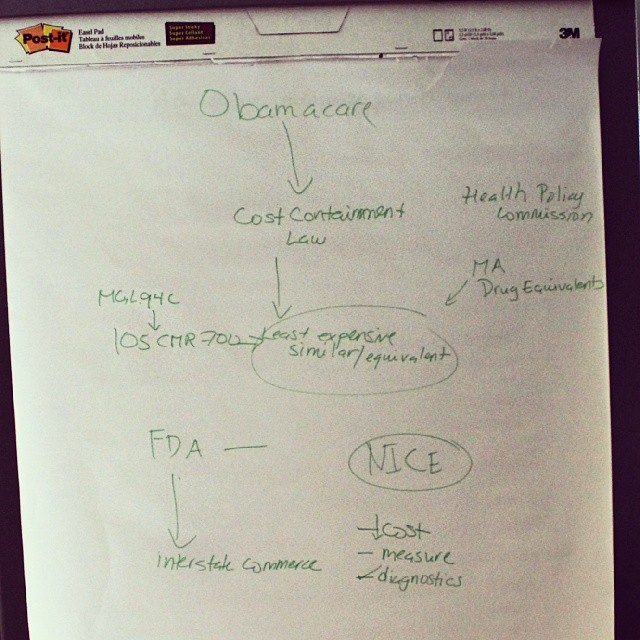 Post-it
Easel Pad
Tableau à feuilles mobiles
Block de Hojas Reposicionables
Super Sticky
Super Collant
Super Adhesivo
3M
Obamacare
Cost Containment
Law
Health Policy
Commission
MA
Drug Equivalents
MGL94C
105 CMR 700
Least expensive
similar/equivalent
FDA —
NICE
interstate commerce
↓Cost
— measure
diagnostics